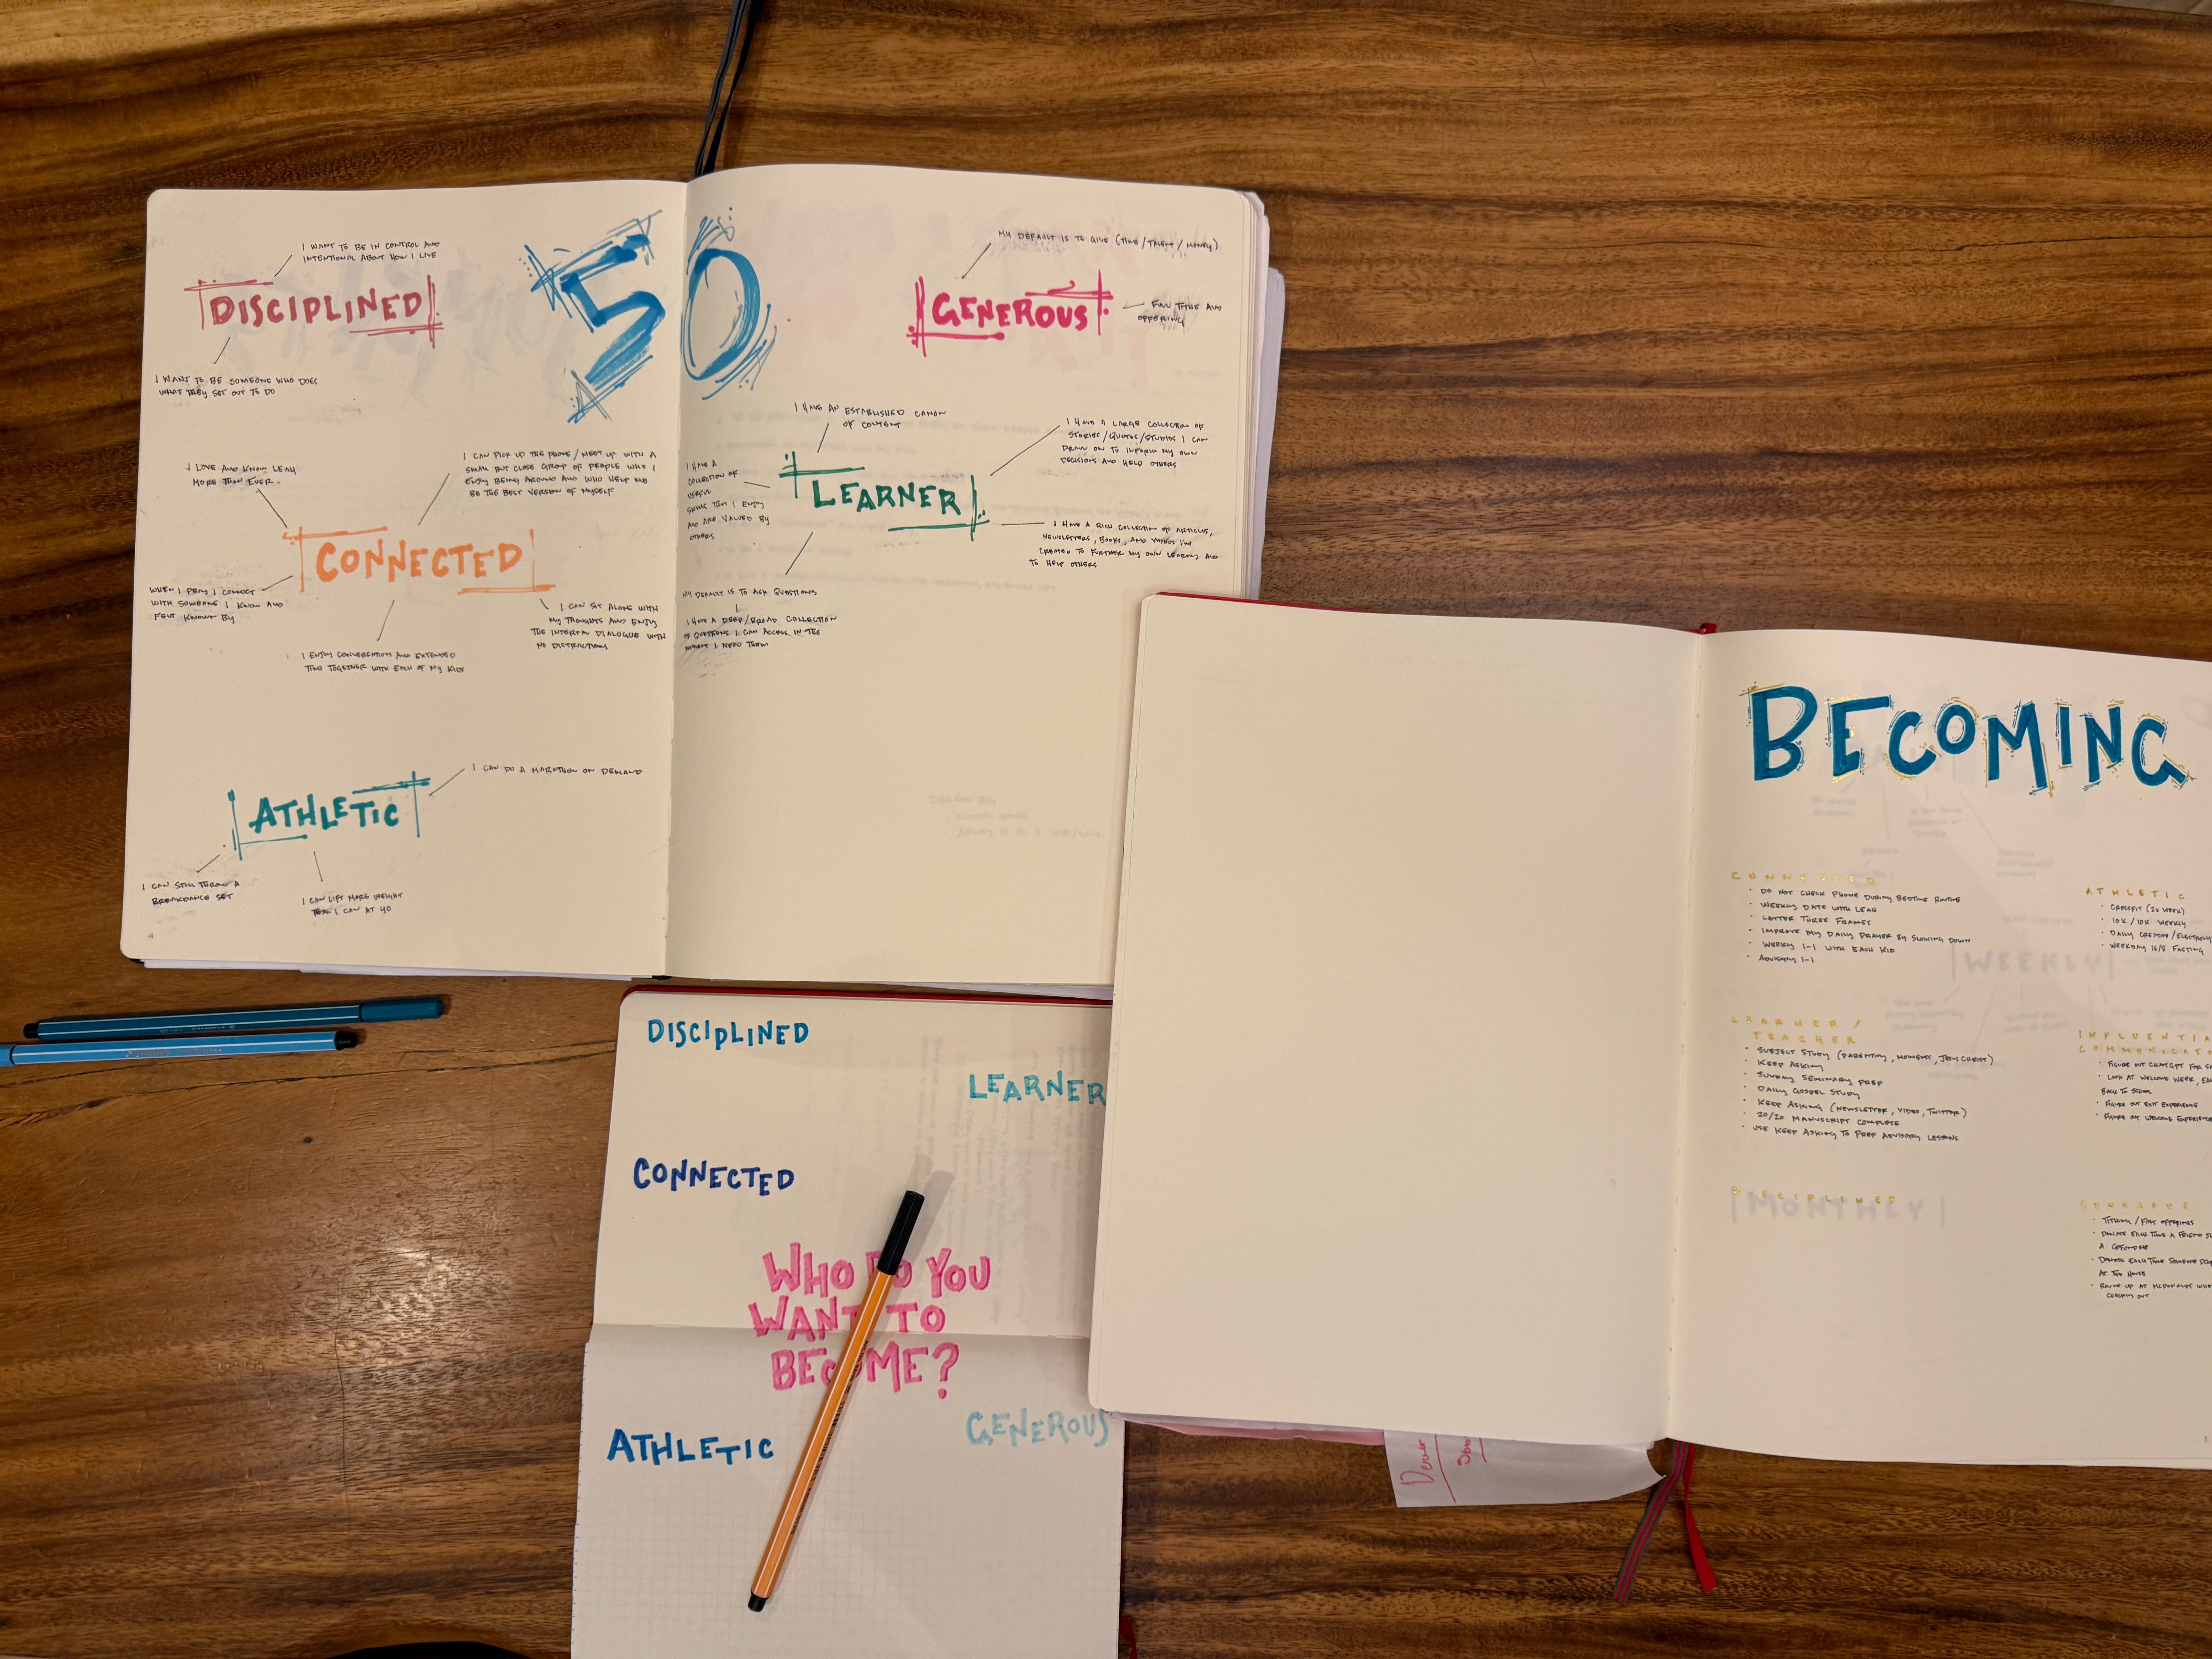 I WANT TO BE IN CONTROL AND
INTENTIONAL ABOUT HOW I LIVE
DISCIPLINED
I WANT TO BE SOMEONE WHO DOES
WHAT THEY SET OUT TO DO
50
I LOVE AND KNOW LEAH
MORE THAN EVER.
I CAN PICK UP THE PHONE / MEET UP WITH A
SMALL BUT CLOSE GROUP OF PEOPLE WHO I
ENJOY BEING AROUND AND WHO HELP ME
BE THE BEST VERSION OF MYSELF
CONNECTED
WHEN I PRAY I CONNECT
WITH SOMEONE I KNOW AND
FELT KNOWN BY
I ENJOY CONVERSATIONS AND EXTENDED
TIME TOGETHER WITH EACH OF MY KIDS
I CAN SIT ALONE WITH
MY THOUGHTS AND ENJOY
THE INTERNAL DIALOGUE WITH
NO DISTRACTIONS
I CAN DO A MARATHON ON DEMAND
ATHLETIC
I CAN STILL THROW A
BREAKDANCE SET
I CAN LIFT MORE WEIGHT
THAN I CAN AT 40
MY DEFAULT IS TO GIVE (TIME / TALENT / MONEY)
GENEROUS
FULL TITHE AND
OFFERING
I HAVE AN ESTABLISHED CANON
OF CONTENT
I HAVE A LARGE COLLECTION OF
STORIES/QUOTES/STUDIES I CAN
DRAW ON TO INFORM MY OWN
DECISIONS AND HELP OTHERS
I HAVE A
COLLECTION OF
USEFUL
SKILLS THAT I ENJOY
AND ARE VALUED BY
OTHERS
LEARNER
I HAVE A RICH COLLECTION OF ARTICLES,
NEWSLETTERS, BOOKS, AND VIDEOS I'VE
CREATED TO FURTHER MY OWN LEARNING AND
TO HELP OTHERS
MY DEFAULT IS TO ASK QUESTIONS
I HAVE A DEEP/BROAD COLLECTION
OF QUESTIONS I CAN ACCESS IN THE
MOMENT I NEED THEM
DISCIPLINED
LEARNER
CONNECTED
WHO DO YOU
WANT TO
BECOME?
ATHLETIC
GENEROUS
BECOMING
CONNECTED
• DO NOT CHECK PHONE DURING BEDTIME ROUTINE
• WEEKLY DATE WITH LEAH
• LETTER THREE FRAMES
• IMPROVE MY DAILY PRAYER BY SLOWING DOWN
• WEEKLY 1-1 WITH EACH KID
• ADVISORY 1-1
ATHLETIC
• CROSSFIT (2X WEEK)
• 10K / 10K WEEKLY
• DAILY CREATINE/
• WEEKDAY 16/8 FASTING
LEARNER /
TEACHER
• SUBJECT STUDY (PARENTING, MOMENTS, JESUS CHRIST)
• KEEP ASKING
• SUNDAY SEMINARY PREP
• DAILY GOSPEL STUDY
• KEEP ASKING (NEWSLETTER, VIDEO, TWITTER)
• 20/20 MANUSCRIPT COMPLETE
• USE KEEP ASKING TO PREP ADVISORY LESSONS
INFLUENTIA
COMMUNICATO
• FIGURE OUT CHATGPT FOR
• LOOK AT WELCOME WEEK,
BACK TO
• FIGURE OUT EXIT EXPERIENCE
• FIGURE OUT WELCOME EXPERIENCE
DISCIPLINED
GENEROUS
• TITHING / FAST OFFERINGS
• DONATE EACH TIME A FRIEND
A GOFUNDME
• DONATE EACH TIME SOMEONE
AT THE HOUSE
• ROUND UP AT MCDONALDS
CHECKING OUT